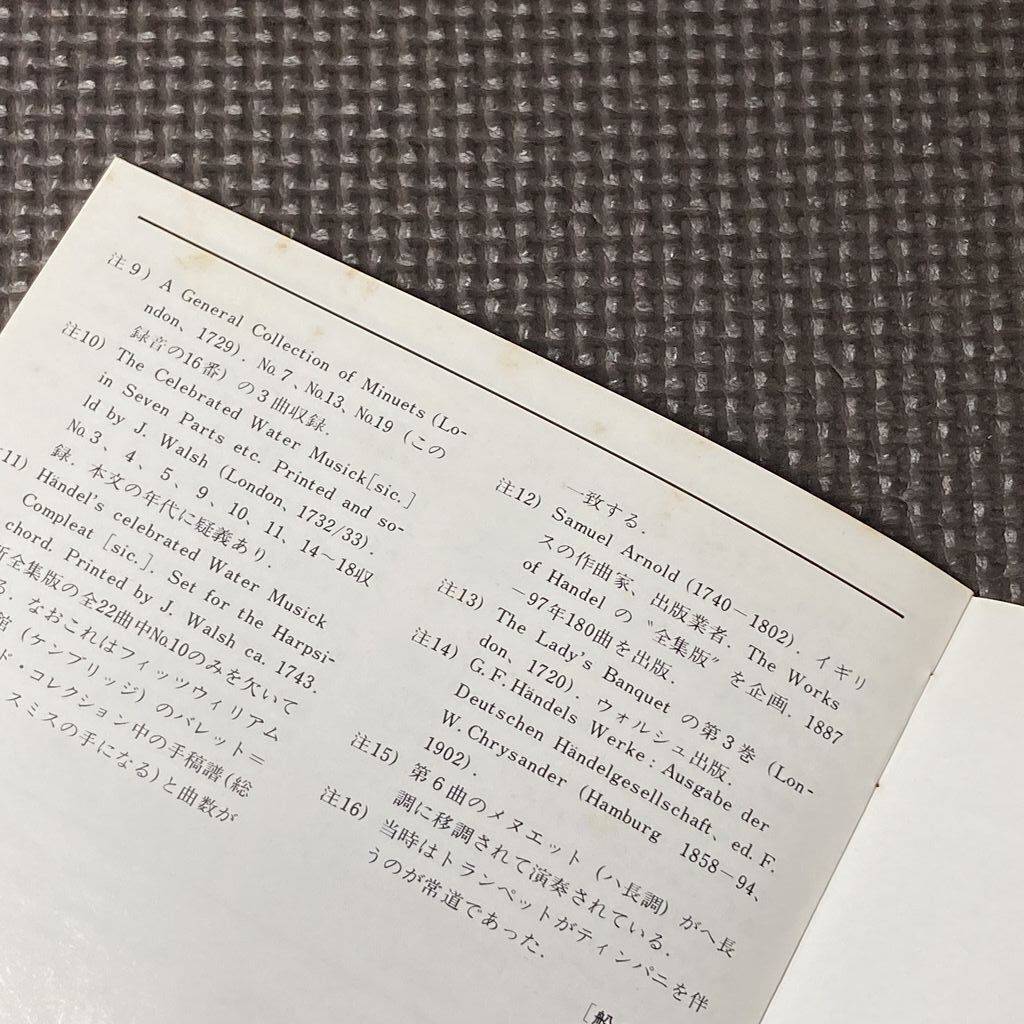 注9) A General Collection of Minuets (Lo-
ndon、1729). No.7、No.13、No.19 (この
録音の16番) の3曲収録.
注10) The Celebrated Water Musick[sic.]
in Seven Parts etc. Printed and so-
ld by J. Walsh (London、1732/33).
No.3、4、5、9、10、11、14〜18収
録. 本文の年代に疑義あり.
11) Händel's celebrated Water Musick
Compleat [sic.]. Set for the Harpsi-
chord. Printed by J. Walsh ca. 1743.
新全集版の全22曲中No.10のみを欠いて
る. なおこれはフィッツウィリアム
館 (ケンブリッジ) のバレット=
ド・コレクション中の手稿譜(総
スミスの手になる)と曲数が
一致する.
注12) Samuel Arnold (1740-1802). イギリ
スの作曲家、出版業者. The Works
of Handel の〝全集版〞を企画. 1887
-97年180曲を出版.
注13) The Lady's Banquet の第3巻 (Lon-
don、1720). ウォルシュ出版.
注14) G.F.Händels Werke : Ausgabe der
Deutschen Händelgesellschaft、ed. F.
W. Chrysander (Hamburg 1858-94、
1902).
注15) 第6曲のメヌエット (ハ長調) がヘ長
調に移調されて演奏されている.
注16) 当時はトランペットがティンパニを伴
うのが常道であった.
[船